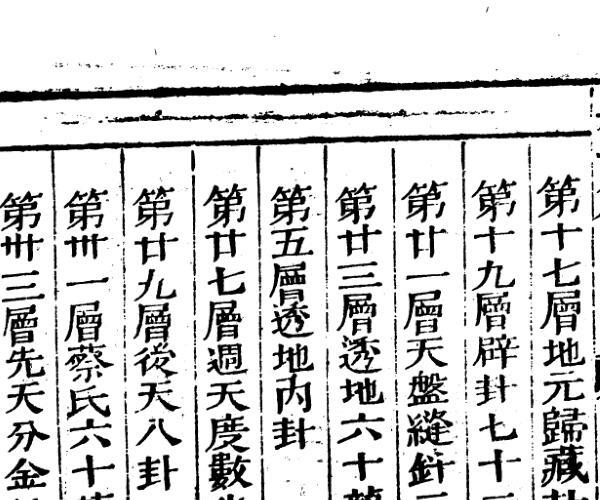 第十七層地元歸藏
第十九層辟卦七十
第廿一層天盤縫針二
第廿三層透地六十龍
第五層透地內卦
第廿七層週天度數
第廿九層後天八卦
第卅一層蔡氏六十
第卅三層先天分金